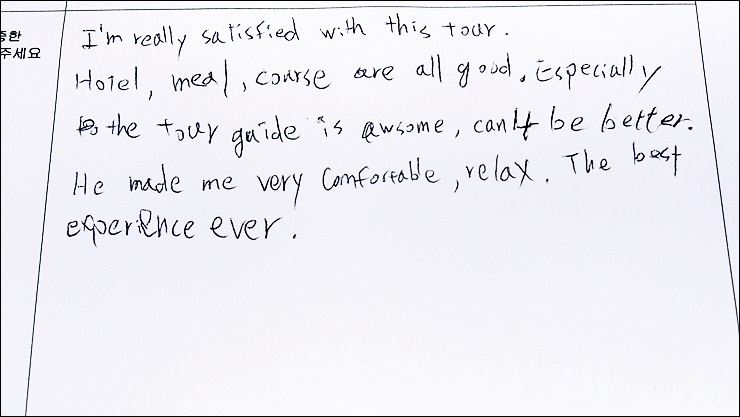 중한
주세요
I'm really satisfied with this tour.
Hotel, meal, course are all good. Especially
the tour guide is awsome, can't be better.
He made me very comfortable, relax. The best
experience ever.